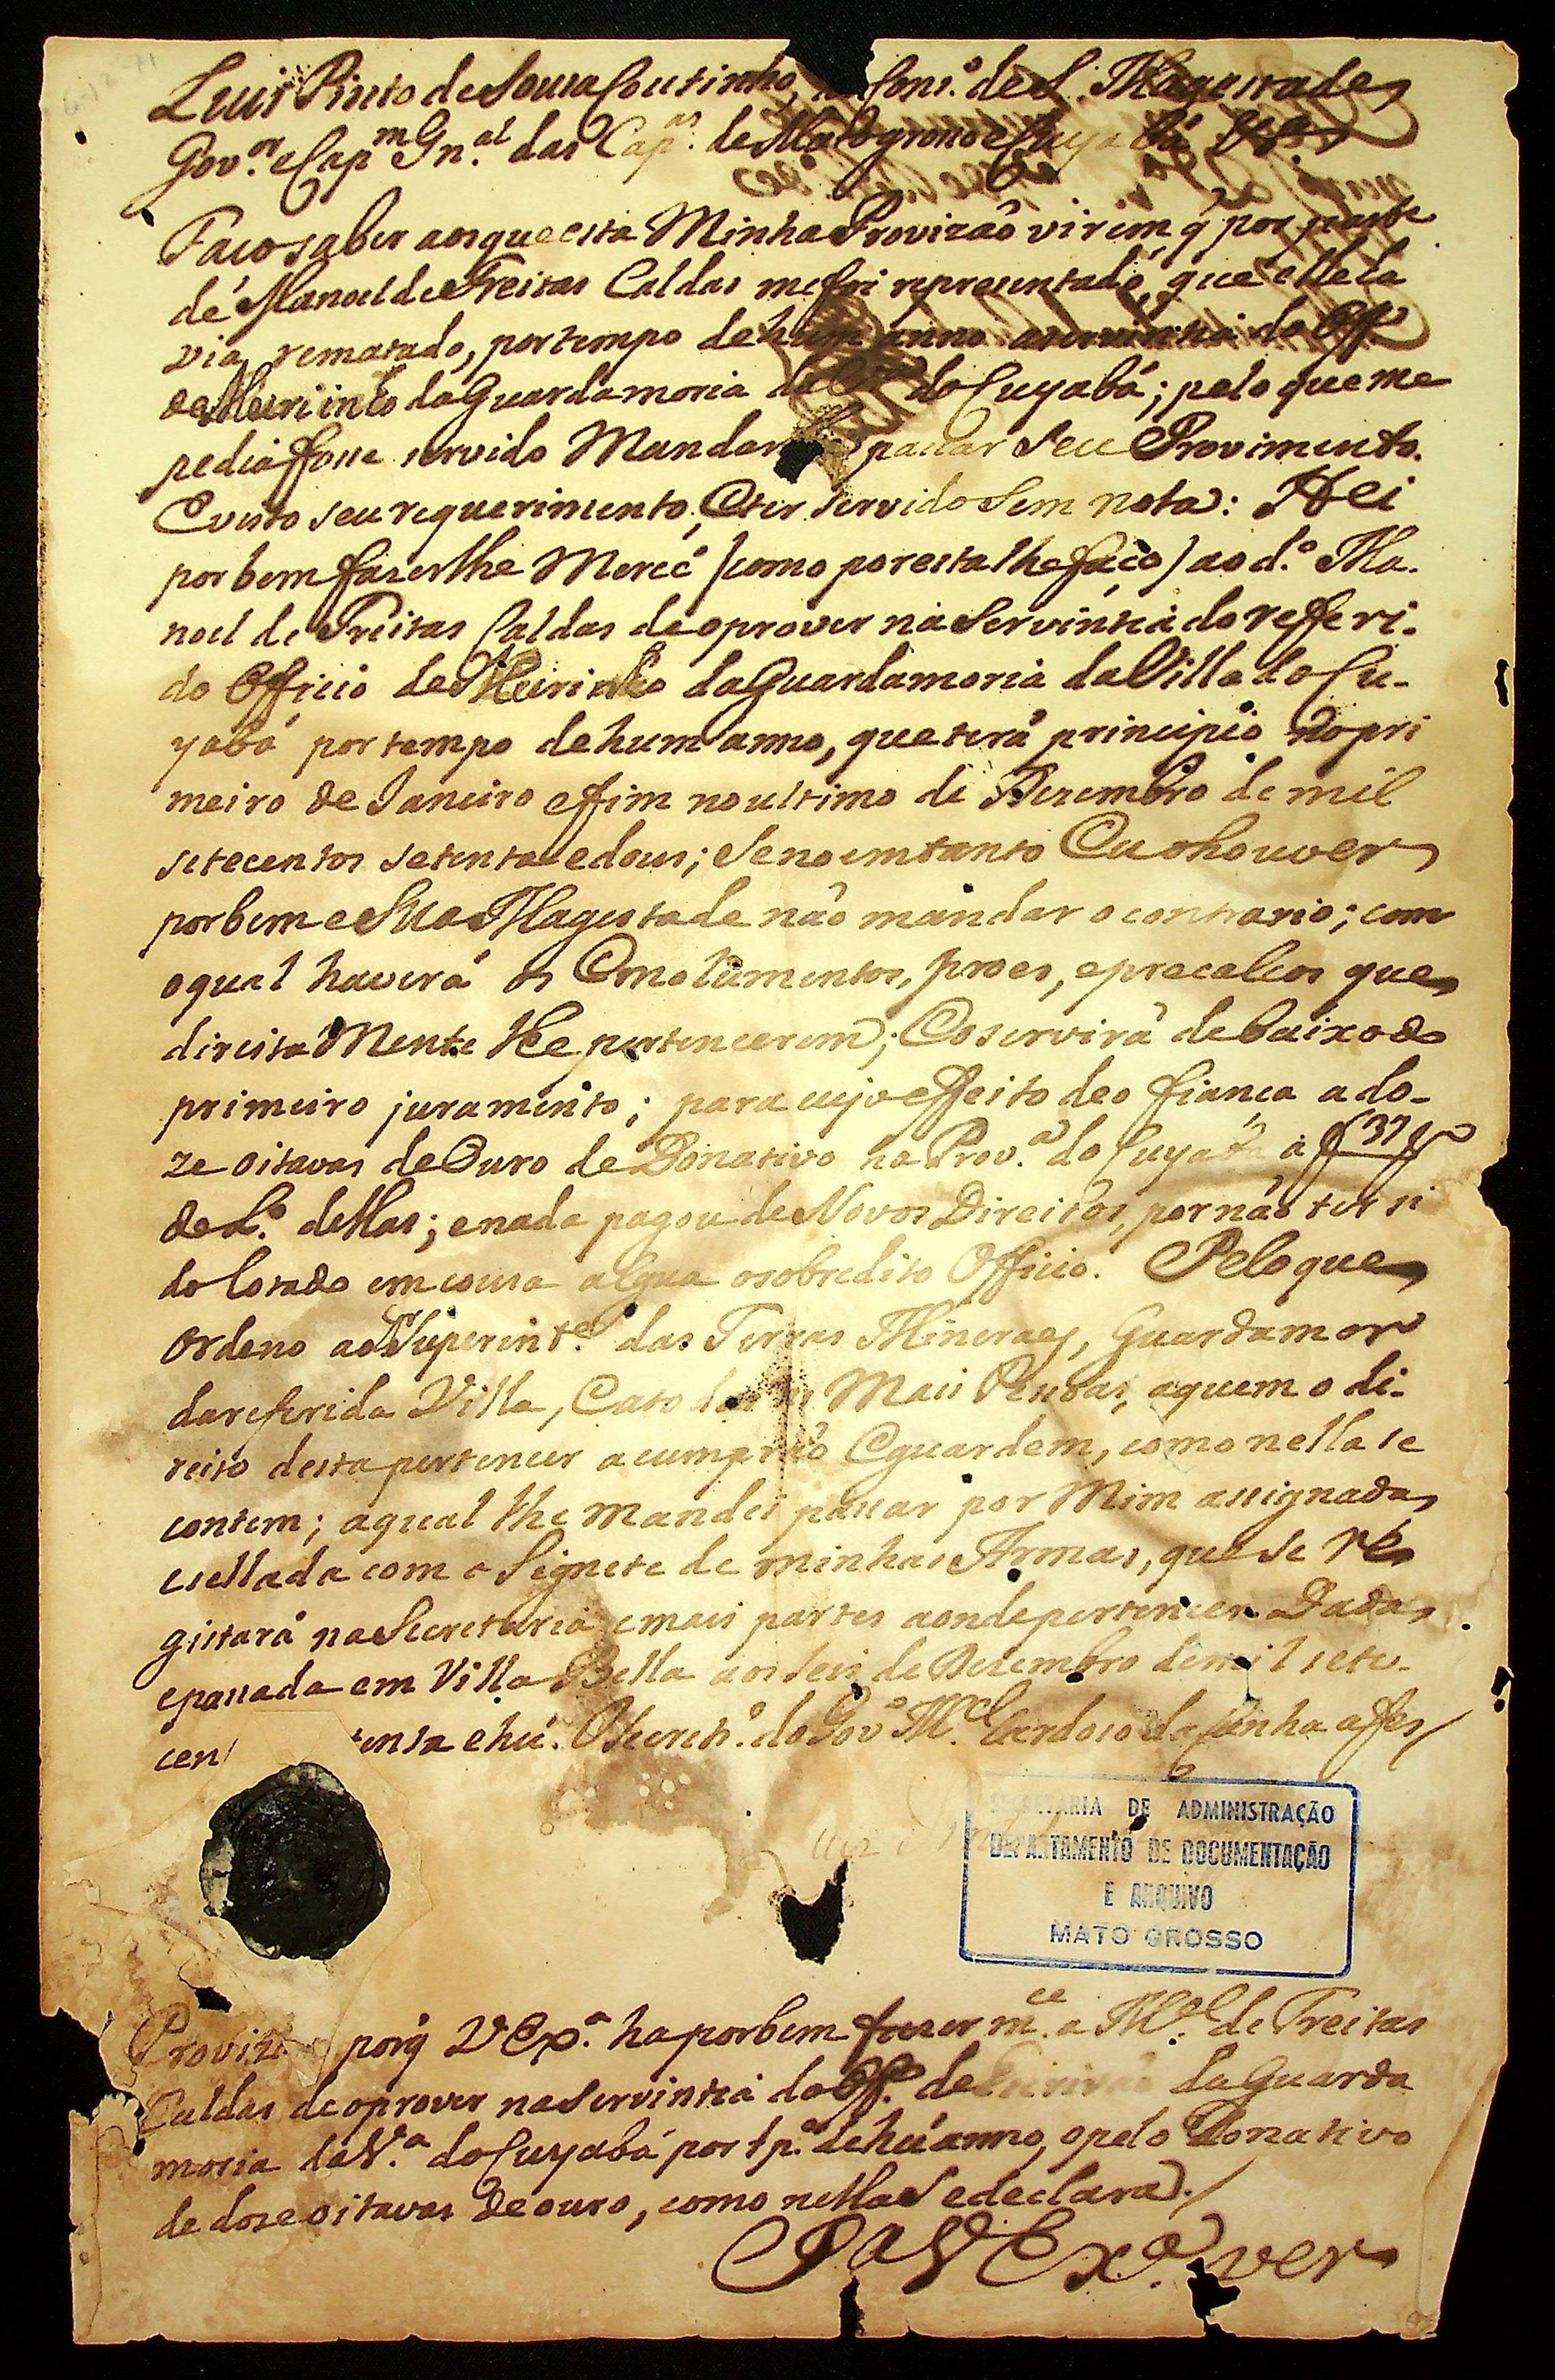 Luis Pinto de Souza Coutinho, do Cons.º de S. Magestade
Gov.or e Cap.m Gn.al das Cap.as de Matogroso e Cuyabá &.a
Faço saber aos que esta Minha Provizaõ virem q̃ por parte
de Manoel de Freitas Caldas me foi representado, que elle ha
via rematado, por tempo de hum anno a serventia do Off.o
de Meirinho da Guardamoria da V.a do Cuyabá; pelo que me
pedia fosse servido Mandar lhe passar seu Provimento.
E visto seu requerimento, E ter servido sem nota: Hei
por bem fazer lhe Mercê [como por esta lhe faço] ao d.º Ma.
noel de Freitas Caldas de o prover na Serventia do refferi.
do Officio de Meirinho da Guardamoria da Villa do Cu-
yabá por tempo de hum anno, que terá principio no pri
meiro de Janeiro e fim no ultimo de Dezembro de mil
setecentos setenta e dous; se no emtanto Eu o houver
por bem e Sua Magestade naõ mandar o contrario; com
o qual haverá os Emolumentos, proes, e precalsos que
direita Mente lhe pertencerem; E o servirá debaixo do
primeiro juramento; para cujo effeito deo fiança a do-
ze oitavas de Ouro de Donativo na Prov.a do Cuyabá a f 37
do L.º dellas; e nada pagou de Novos Direitos, por naõ ter si
do lotado em couza algũa o sobredito Officio. Pelo que
Ordeno ao Superint.e das Terras Mineraes, Guardamor
da referida Villa, E a todas as Mais Pessoas, a quem o di.
reito desta pertencer a cumpraõ E guardem, como nella se
contem; a qual lhe Mandei passar por Mim assignada
e sellada com o Signete de minhas Armas, que se re
gistará na Secretaria e mais partes aonde pertencer. Dada
e passada em Villa Bella aos seis de Dezembro de mil sete-
cen tenta e hũ. O Secret.º do Gov.º M.el Cardoso da Cunha a fes/
SECRETARIA DE ADMINISTRAÇÃO
DEPARTAMENTO DE DOCUMENTAÇÃO
E ARQUIVO
MATO GROSSO
Provizaõ porq̃ V Ex.a ha por bem fazer m.ce a M.el de Freitas
Caldas de o prover na Serventia do Off.o de da Guarda
moria da V.a do Cuyabá por tp.o de hũ anno, e pelo Donativo
de doze oitavas de ouro, como nella se declara./
P.a V Ex.a ver